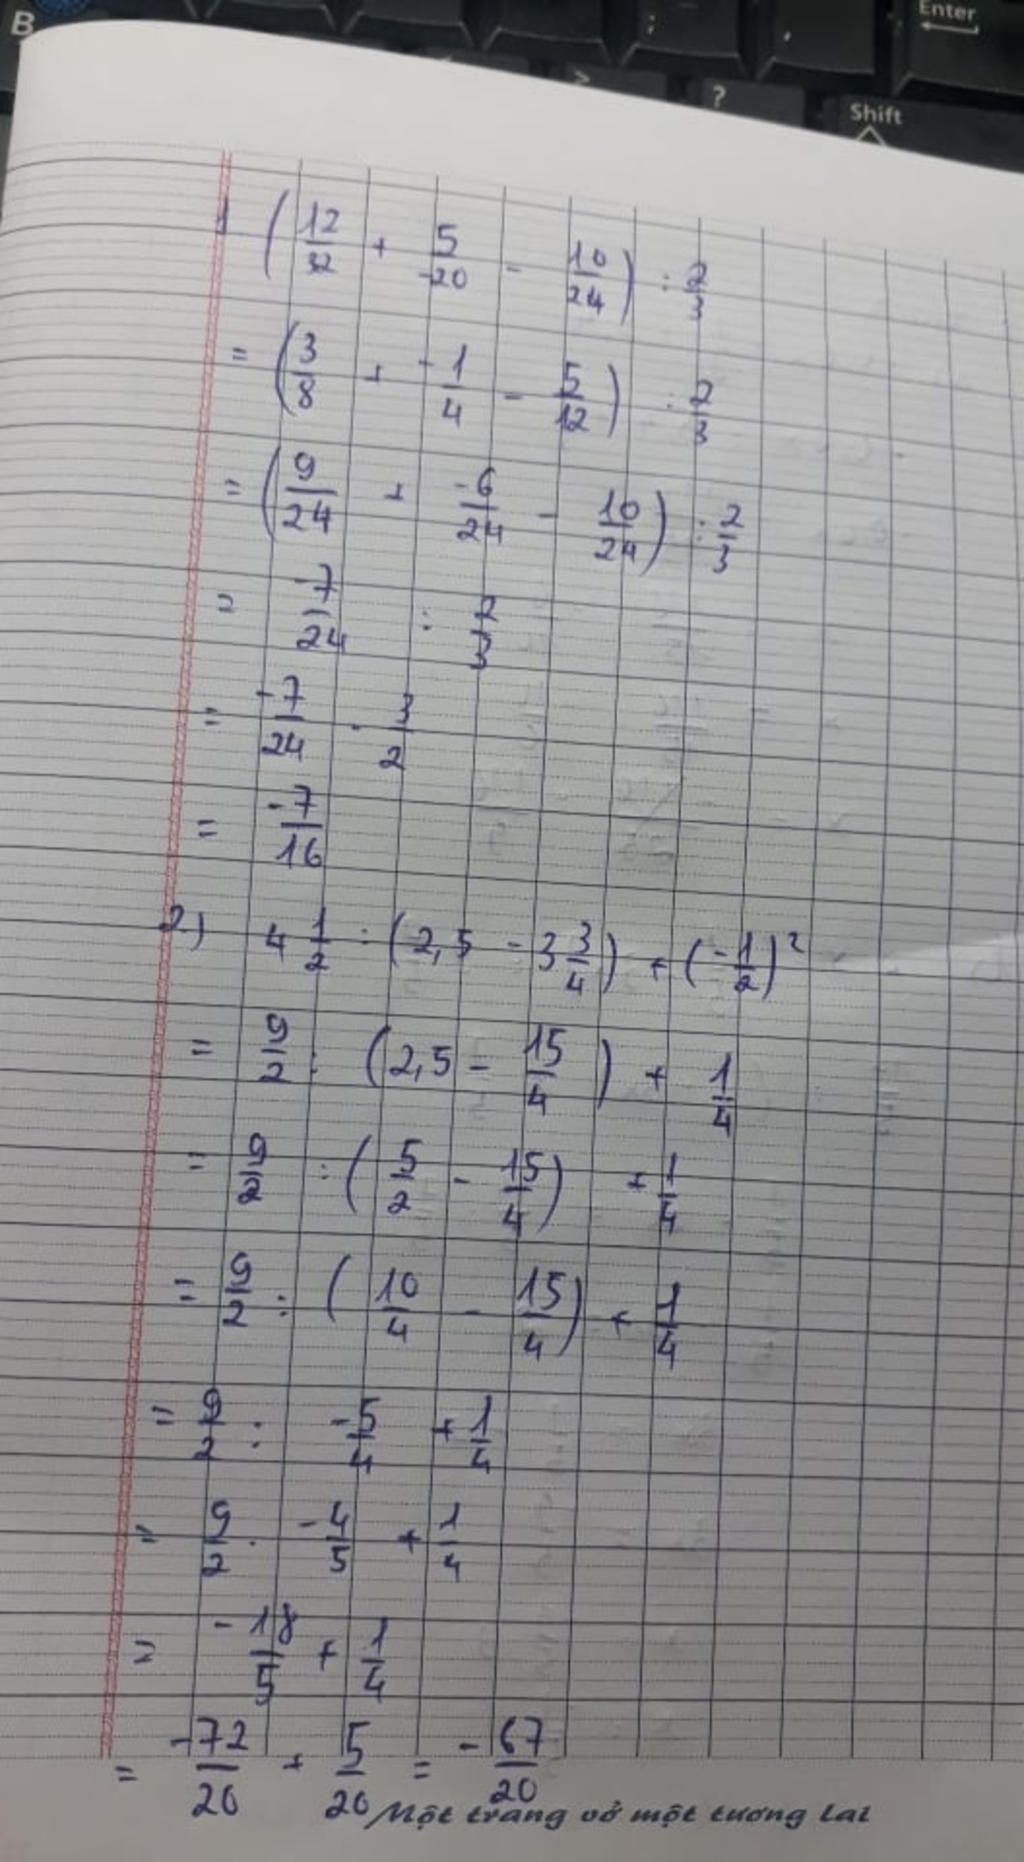 B
Enter
;
,
>
?
Shift
1 (12/32 + 5/-20 - 10/24) : 2/3
= (3/8 + -1/4 - 5/12) : 2/3
= (9/24 + -6/24 - 10/24) : 2/3
= -7/24 : 2/3
= -7/24 . 3/2
= -7/16
2.) 4 1/2 : (2,5 - 3 3/4) + (-1/2)²
= 9/2 : (2,5 - 15/4) + 1/4
= 9/2 : (5/2 - 15/4) + 1/4
= 9/2 : (10/4 - 15/4) + 1/4
= 9/2 : -5/4 + 1/4
= 9/2 . -4/5 + 1/4
= -18/5 + 1/4
= -72/20 + 5/20 = -67/20
Một trang vở một tương lai